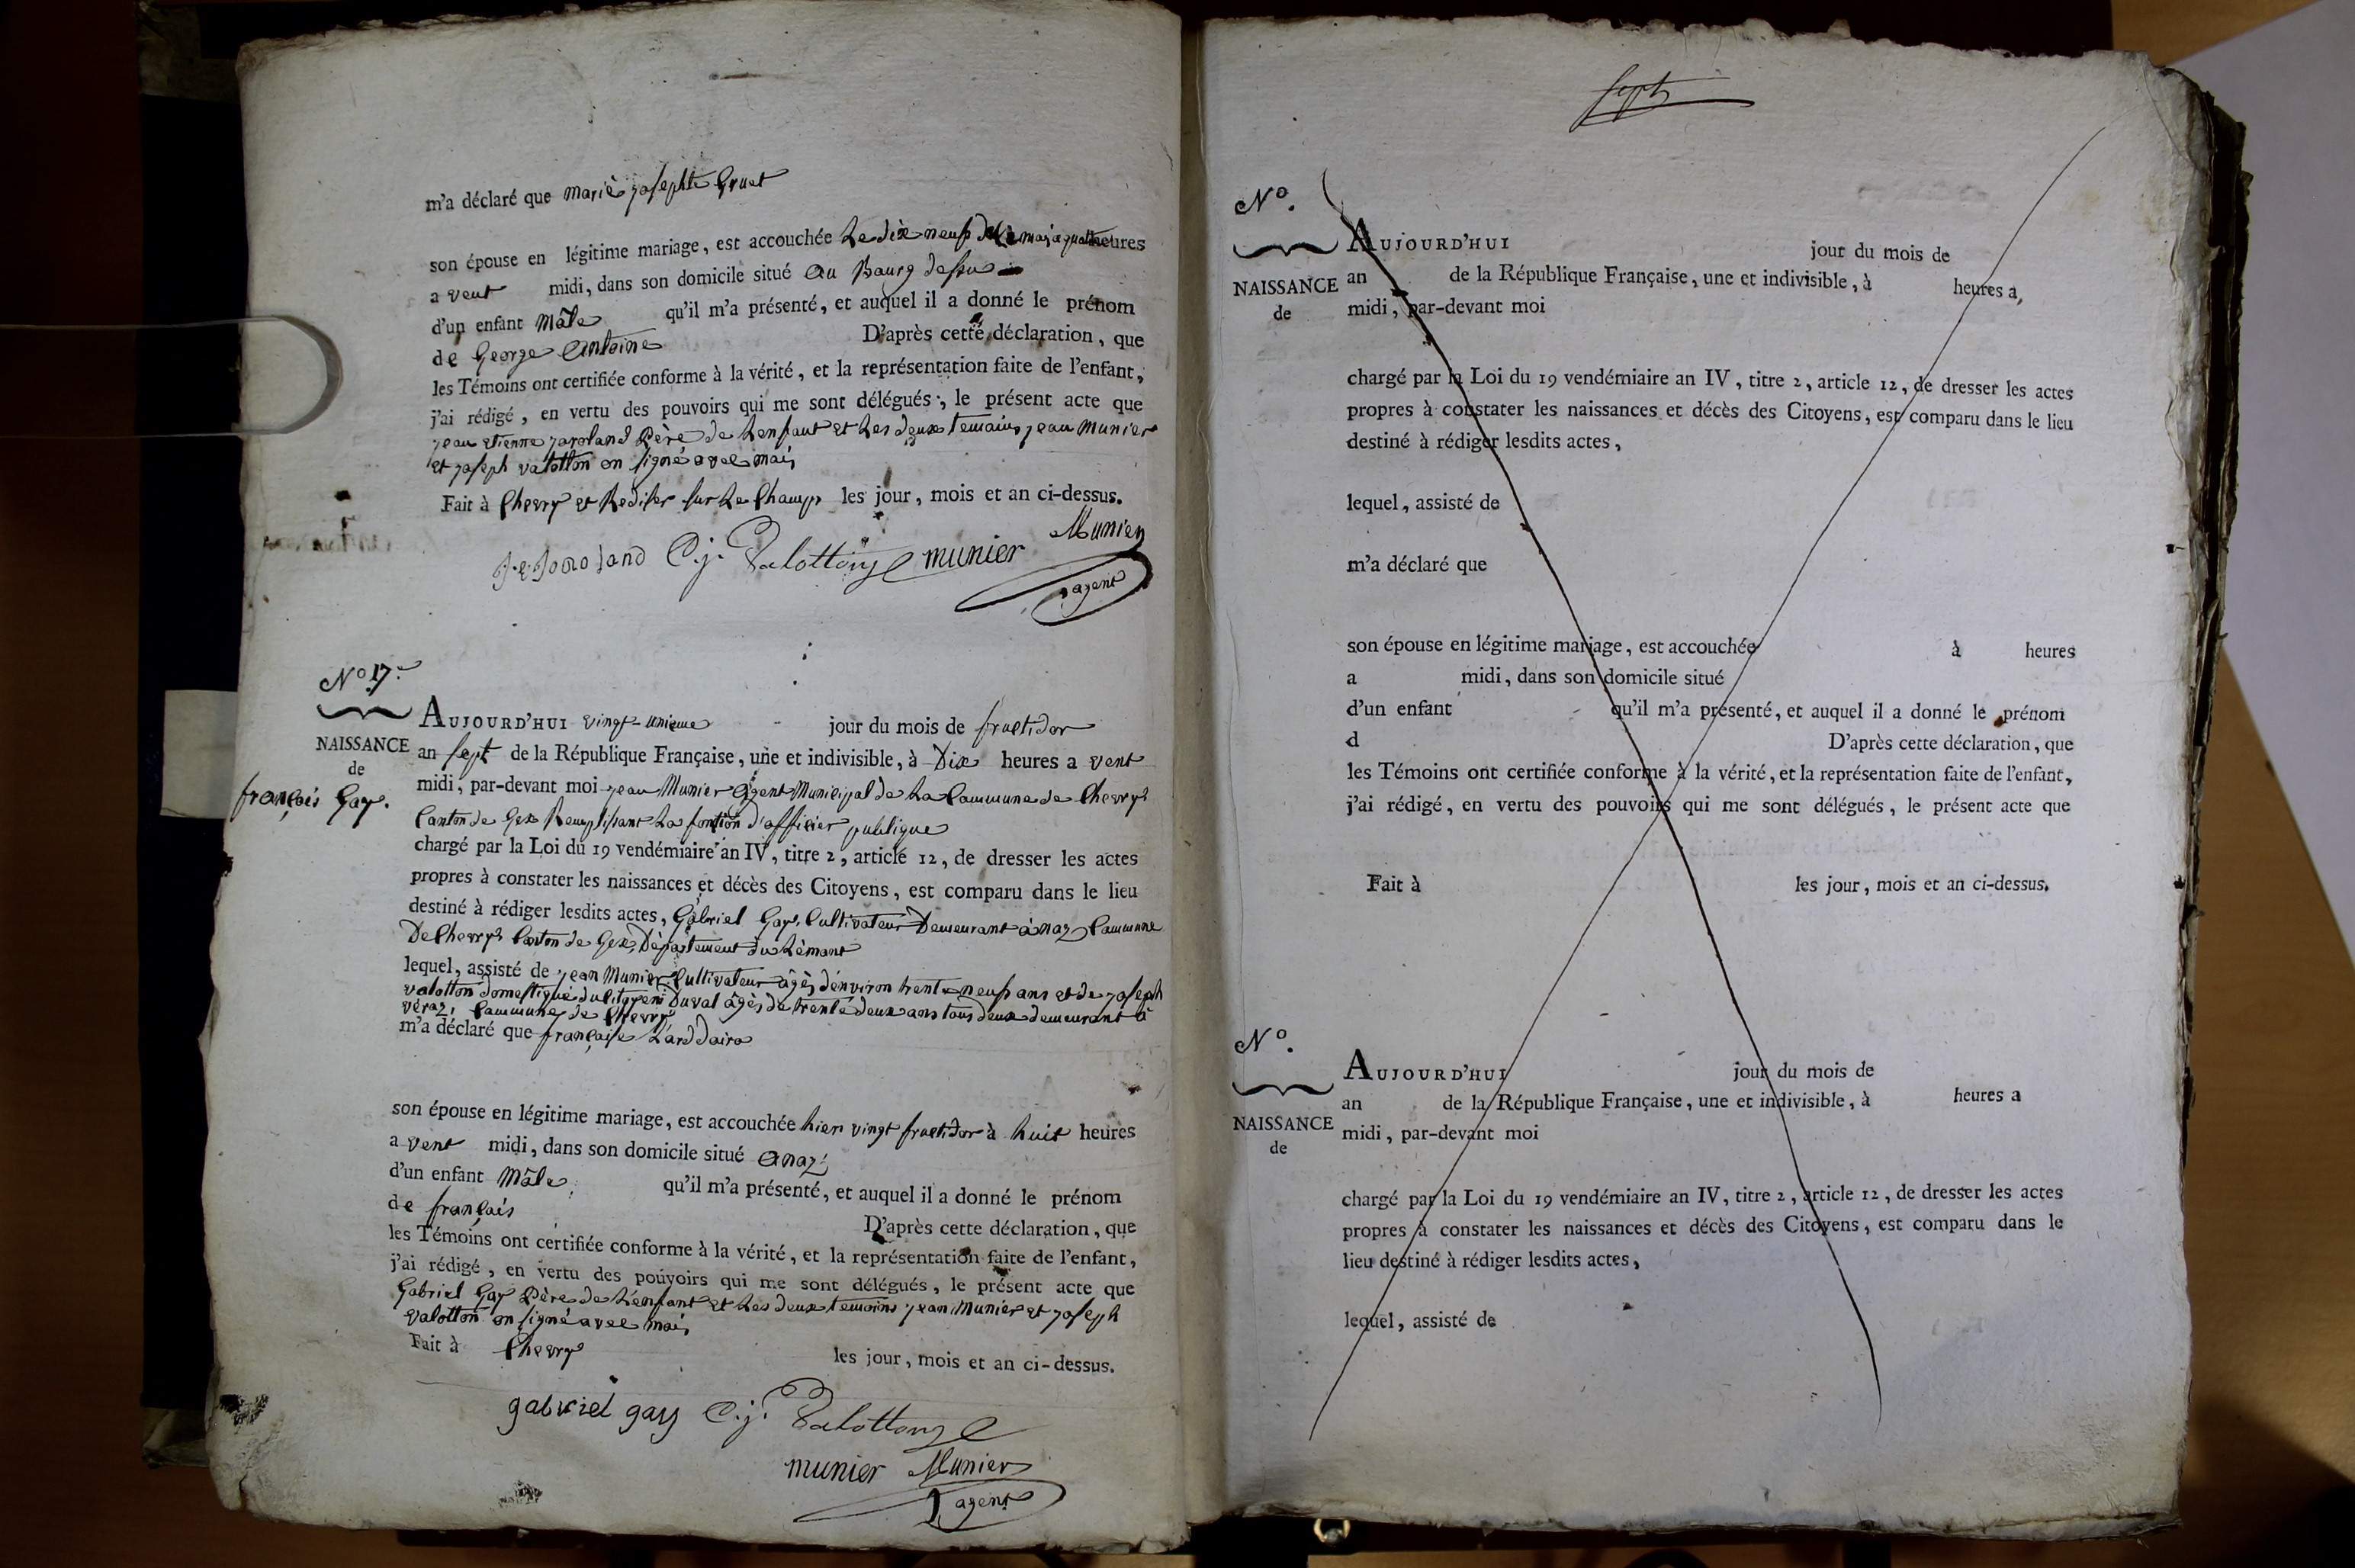 m'a déclaré que marie josephte Gruet
son épouse en légitime mariage, est accouchée Le dix neuf du mois a quatre heures
a vent midi, dans son domicile situé au Bourg dessu
d'un enfant Mâle qu'il m'a présenté, et auquel il a donné le prénom
de George Antoine D'après cette déclaration, que
les Témoins ont certifiée conforme à la vérité, et la représentation faite de l'enfant,
j'ai rédigé, en vertu des pouvoirs qui me sont délégués, le présent acte que
jean etienne jaroland Père de Lenfant et Les deux temains jean Munier
et joseph valotton on signé avec mois
Fait à Chevry et Rediser sur Le Champ les jour, mois et an ci-dessus.
Munier
C. j. Valotton munier
agent
Nº 17.
AUJOURD'HUI vingt-unieme jour du mois de fructidor
NAISSANCE an sept de la République Française, une et indivisible, à Dix heures a vent
de
midi, par-devant moi jean Munier Agent Municipal de La Commune de Chevry
françois Gay.
Canton de Gex Remplissant La fontion d'officier publique
chargé par la Loi du 19 vendémiaire an IV, titre 2, article 12, de dresser les actes
propres à constater les naissances et décès des Citoyens, est comparu dans le lieu
destiné à rédiger lesdits actes, Gabriel Gay, Cultivateur Demeurant à naz Commune
De Chevry Canton de Gex, Département du Lémant
lequel, assisté de jean Munier Cultivateur âgés d'environ trente neuf ans et de joseph
valotton domestique du Citoyen Duval âgés de trente deux ans tous deux demeurant à
véraz, Commune de Chevry
m'a déclaré que françoise
son épouse en légitime mariage, est accouchée hier vingt fructidor à huit heures
a vent midi, dans son domicile situé a naz
d'un enfant Mâle, qu'il m'a présenté, et auquel il a donné le prénom
de françois D'après cette déclaration, que
les Témoins ont certifiée conforme à la vérité, et la représentation faite de l'enfant,
j'ai rédigé, en vertu des pouvoirs qui me sont délégués, le présent acte que
Gabriel Gay Père de L'enfant et Les deux temoins jean Munier et joseph
valotton on signé avec mois
Fait à Chevry les jour, mois et an ci-dessus.
gabriel gay C. j. Valotton
munier Munier
agent
sept
Nº.
AUJOURD'HUI jour du mois de
NAISSANCE an de la République Française, une et indivisible, à heures a,
de midi, par-devant moi
chargé par la Loi du 19 vendémiaire an IV, titre 2, article 12, de dresser les actes
propres à constater les naissances et décès des Citoyens, est comparu dans le lieu
destiné à rédiger lesdits actes,
lequel, assisté de
m'a déclaré que
son épouse en légitime mariage, est accouchée à heures
a midi, dans son domicile situé
d'un enfant qu'il m'a présenté, et auquel il a donné le prénom
d D'après cette déclaration, que
les Témoins ont certifiée conforme à la vérité, et la représentation faite de l'enfant,
j'ai rédigé, en vertu des pouvoirs qui me sont délégués, le présent acte que
Fait à les jour, mois et an ci-dessus.
Nº.
AUJOURD'HUI jour du mois de
an de la République Française, une et indivisible, à heures a
NAISSANCE midi, par-devant moi
de
chargé par la Loi du 19 vendémiaire an IV, titre 2, article 12, de dresser les actes
propres à constater les naissances et décès des Citoyens, est comparu dans le
lieu destiné à rédiger lesdits actes,
lequel, assisté de